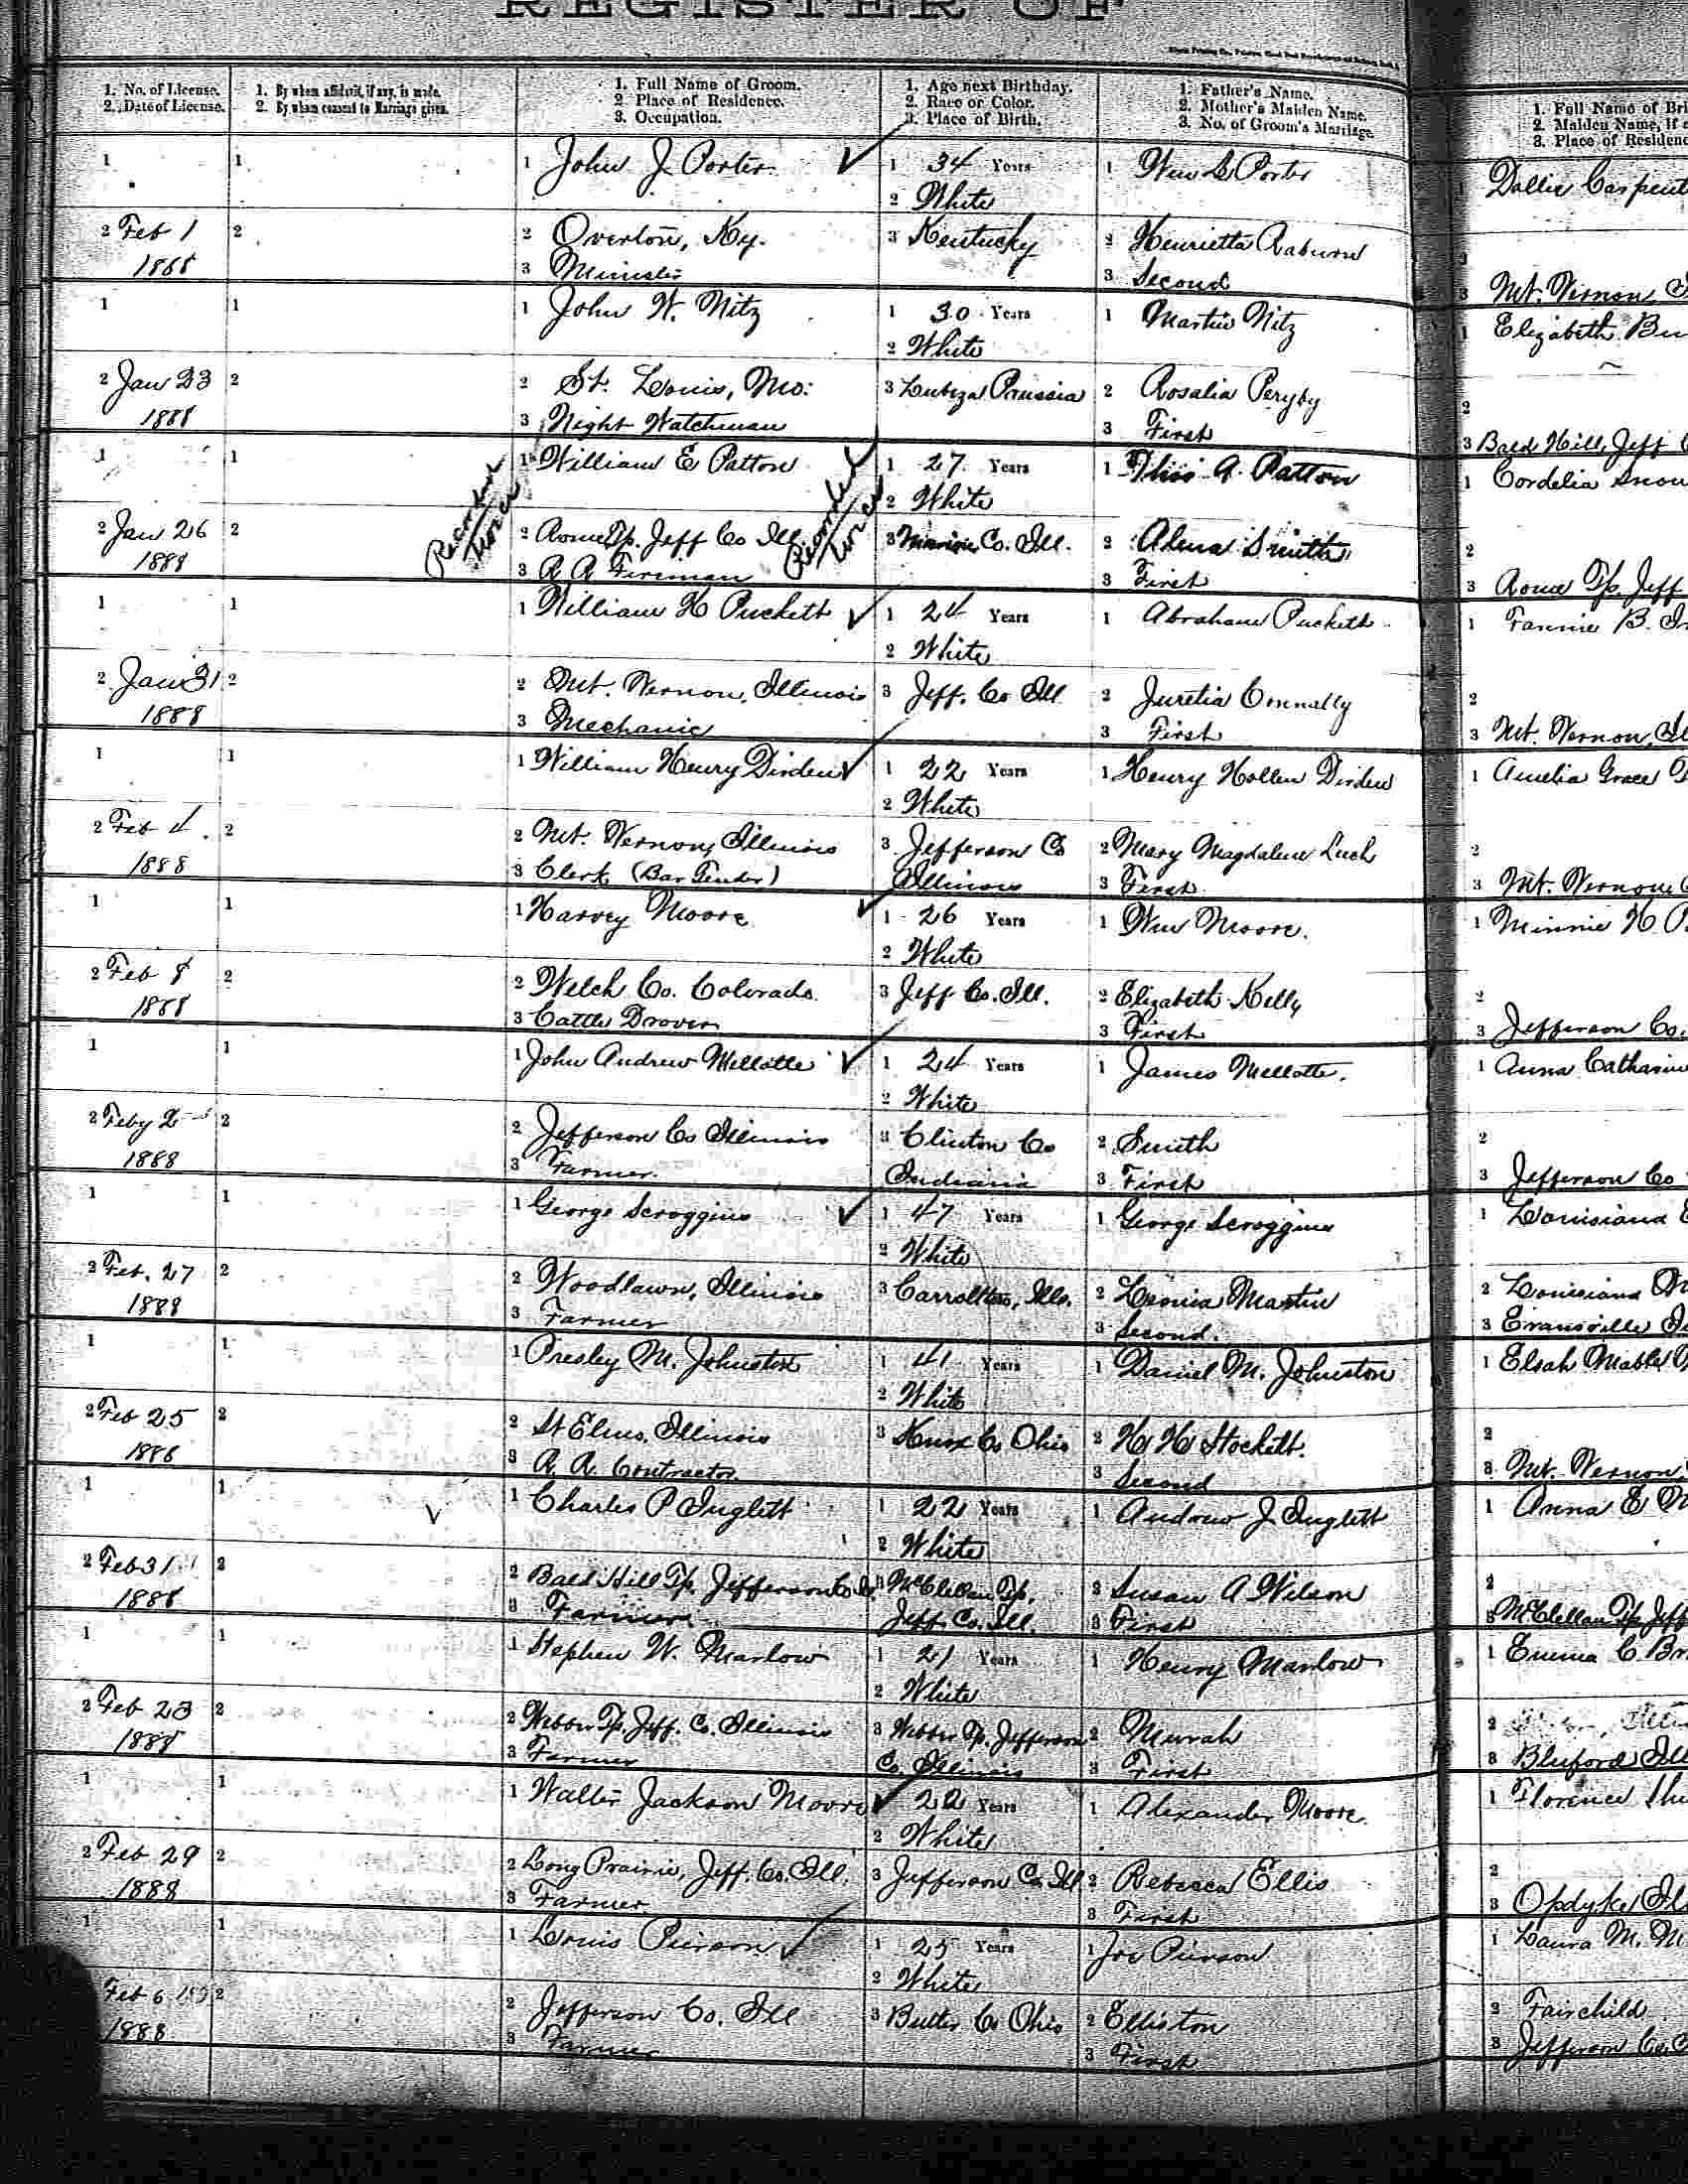 REGISTER OF
1. No. of License.
2. Date of License.
1. By whom affidavit, if any, is made.
2. By whom consent to Marriage given.
1. Full Name of Groom.
2 Place of Residence.
3. Occupation.
1. Age next Birthday.
2. Race or Color.
3. Place of Birth.
1. Father's Name.
2. Mother's Maiden Name.
3. No. of Groom's Marriage.
1. Full Name of Bri
2. Maiden Name, if
3. Place of Residenc
1 1 1 John J. Porter 1 34 Years 1 Wm Porter Dollie Carpent
2 White
2 Feb 1 2 2 Overton, Ky. 3 Kentucky 2 Henrietta Raburn
1888 3 Minister 3 Second 3 Mt. Vernon,
1 1 1 John W. Nitz 1 30 Years 1 Martin Nitz 1 Elizabeth Bu
2 White
2 Jan 23 2 2 St. Louis, Mo. 3 Prussia 2 Rosalia 2
1888 3 Night Watchman 3 First 3 Bald Hill, Jeff
1 1 1 William E Patton 1 27 Years 1 Thos A. Patton 1 Cordelia
2 White
Recorded twice Recorded twice
2 Jan 26 2 2 Rome Tp. Jeff Co Ill 3 Marion Co. Ill. 2 Alma Smith 2
1888 3 R R Fireman 3 First 3 Rome Tp Jeff
1 1 1 William H Puckett 1 24 Years 1 Abraham Puckett 1 Fannie B.
2 White
2 Jan 31 2 2 Mt. Vernon, Illinois 3 Jeff. Co Ill 2 Connally 2
1888 3 Mechanic 3 First 3 Mt. Vernon, Il
1 1 1 William Henry Dirden 1 22 Years 1 Henry Hollen Dirden 1 Amelia Grace
2 White
2 Feb 4 2 2 Mt. Vernon, Illinois 3 Jefferson Co 2 Mary Magdalene 2
1888 3 Clerk (Bar Tender) Illinois 3 First 3 Mt. Vernon
1 1 1 Harvey Moore 1 26 Years 1 Wm Moore. 1 Minnie H.
2 White
2 Feb 8 2 2 Welch Co. Colorado. 3 Jeff Co. Ill. 2 Elizabeth Kelly 2
1888 3 Cattle Drover 3 First 3 Jefferson Co.
1 1 1 John Andrew Mellotte 1 24 Years 1 James Mellotte. 1 Anna Catharin
2 White
2 Feby 2 2 2 Jefferson Co Illinois 3 Clinton Co 2 Smith 2
1888 3 Farmer. Indiana 3 First 3 Jefferson Co
1 1 1 George Scroggins 1 47 Years 1 George Scroggins 1 Louisiana
2 White
2 Feb. 27 2 2 Woodlawn, Illinois 3 Carrollton, Ills. 2 Martin 2 Louisiana
1888 3 Farmer 3 Second. 3 Evansville
1 1 1 Presley M. Johnston 1 41 Years 1 Daniel M. Johnston 1 Elsah Mable
2 White
2 Feb 25 2 2 St Elmo, Illinois 3 Knox Co Ohio 2 H H Stockett. 2
1888 3 R. R. Contractor 3 Second 3 Mt. Vernon,
1 1 1 Charles P Inglett 1 22 Years 1 Andrew J Inglett 1 Anna E
2 White
2 Feb 31 2 2 Bald Hill Tp. Jefferson Co 3 McClellan Tp, 2 Susan A Wilson 2
1888 3 Farmer Jeff. Co. Ill. 3 First 3 McClellan Tp Jeff
1 1 1 Stephen W. Marlow 1 21 Years 1 Henry Marlow 1 Emma C Br
2 White
2 Feb 23 2 2 Webber Tp. Jeff. Co. Illinois 3 Webber Tp. Jefferson 2 Murrah 2
1888 3 Farmer Co. Illinois 3 First 3 Bluford Ill
1 1 1 Walter Jackson Moore 1 22 Years 1 Alexander Moore. 1 Florence
2 White
2 Feb 29 2 2 Long Prairie, Jeff. Co. Ill. 3 Jefferson Co. Ill 2 Rebecca Ellis 2
1888 3 Farmer 3 First 3 Opdyke Il
1 1 1 Louis Pierson 1 25 Years 1 Joe Pierson 1 Laura M. M
2 White
Feb 6 2 2 Jefferson Co. Ill 3 Butler Co Ohio 2 Elliston 2 Fairchild
1888 3 Farmer 3 First 3 Jefferson Co.